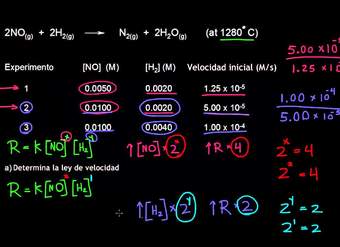 2NO(g) + 2H₂(g) → N₂(g) + 2H₂O(g) (at 1280°C)
Experimento [NO] (M) [H₂] (M) Velocidad inicial (M/s)
1 0.0050 0.0020 1.25 x 10⁻⁵
2 0.0100 0.0020 5.00 x 10⁻⁵
3 0.0100 0.0040 1.00 x 10⁻⁴
5.00 x10
1.25 x 10
1.00 x10⁻⁴
5.00 x10⁻⁵
R = K [NO]ˣ [H₂]ʸ
↑[NO] x 2ˣ ↑R x 4
2ˣ = 4
2² = 4
a) Determina la ley de velocidad
R = K [NO]² [H₂]¹
↑[H₂] x 2ʸ ↑R x 2
2ʸ = 2
2¹ = 2